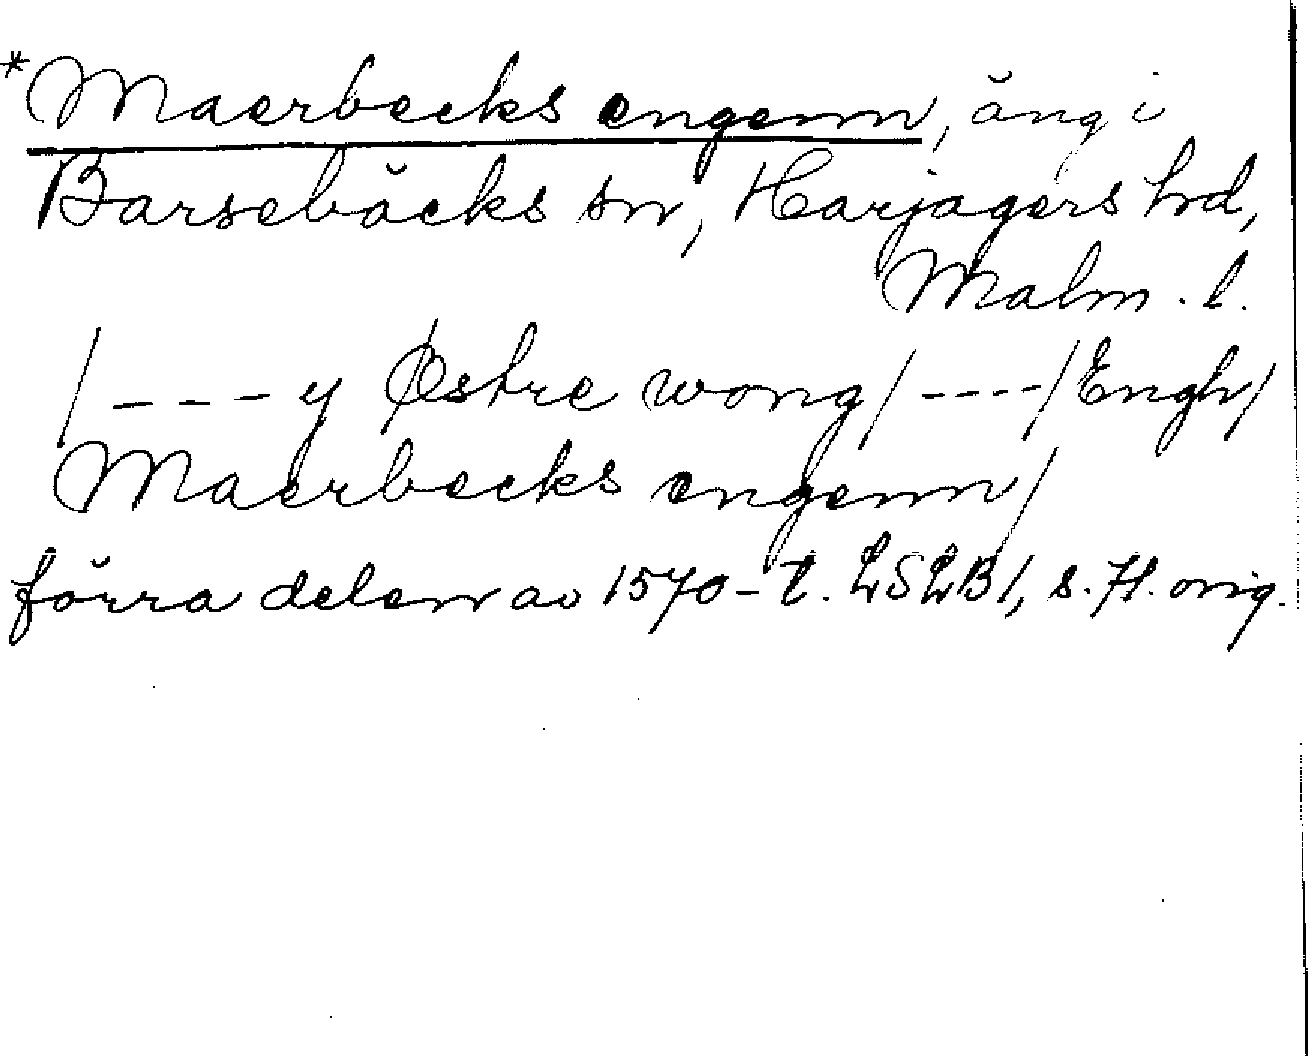 *Maerbecks engenn, äng i
Barsebäcks sn, Harjagers hd,
Malm. l.
/---y Østre wong/---/Engh/
Maerbecks engenn/
förra delen av 1570-t. LSLB1, s. 71. orig.